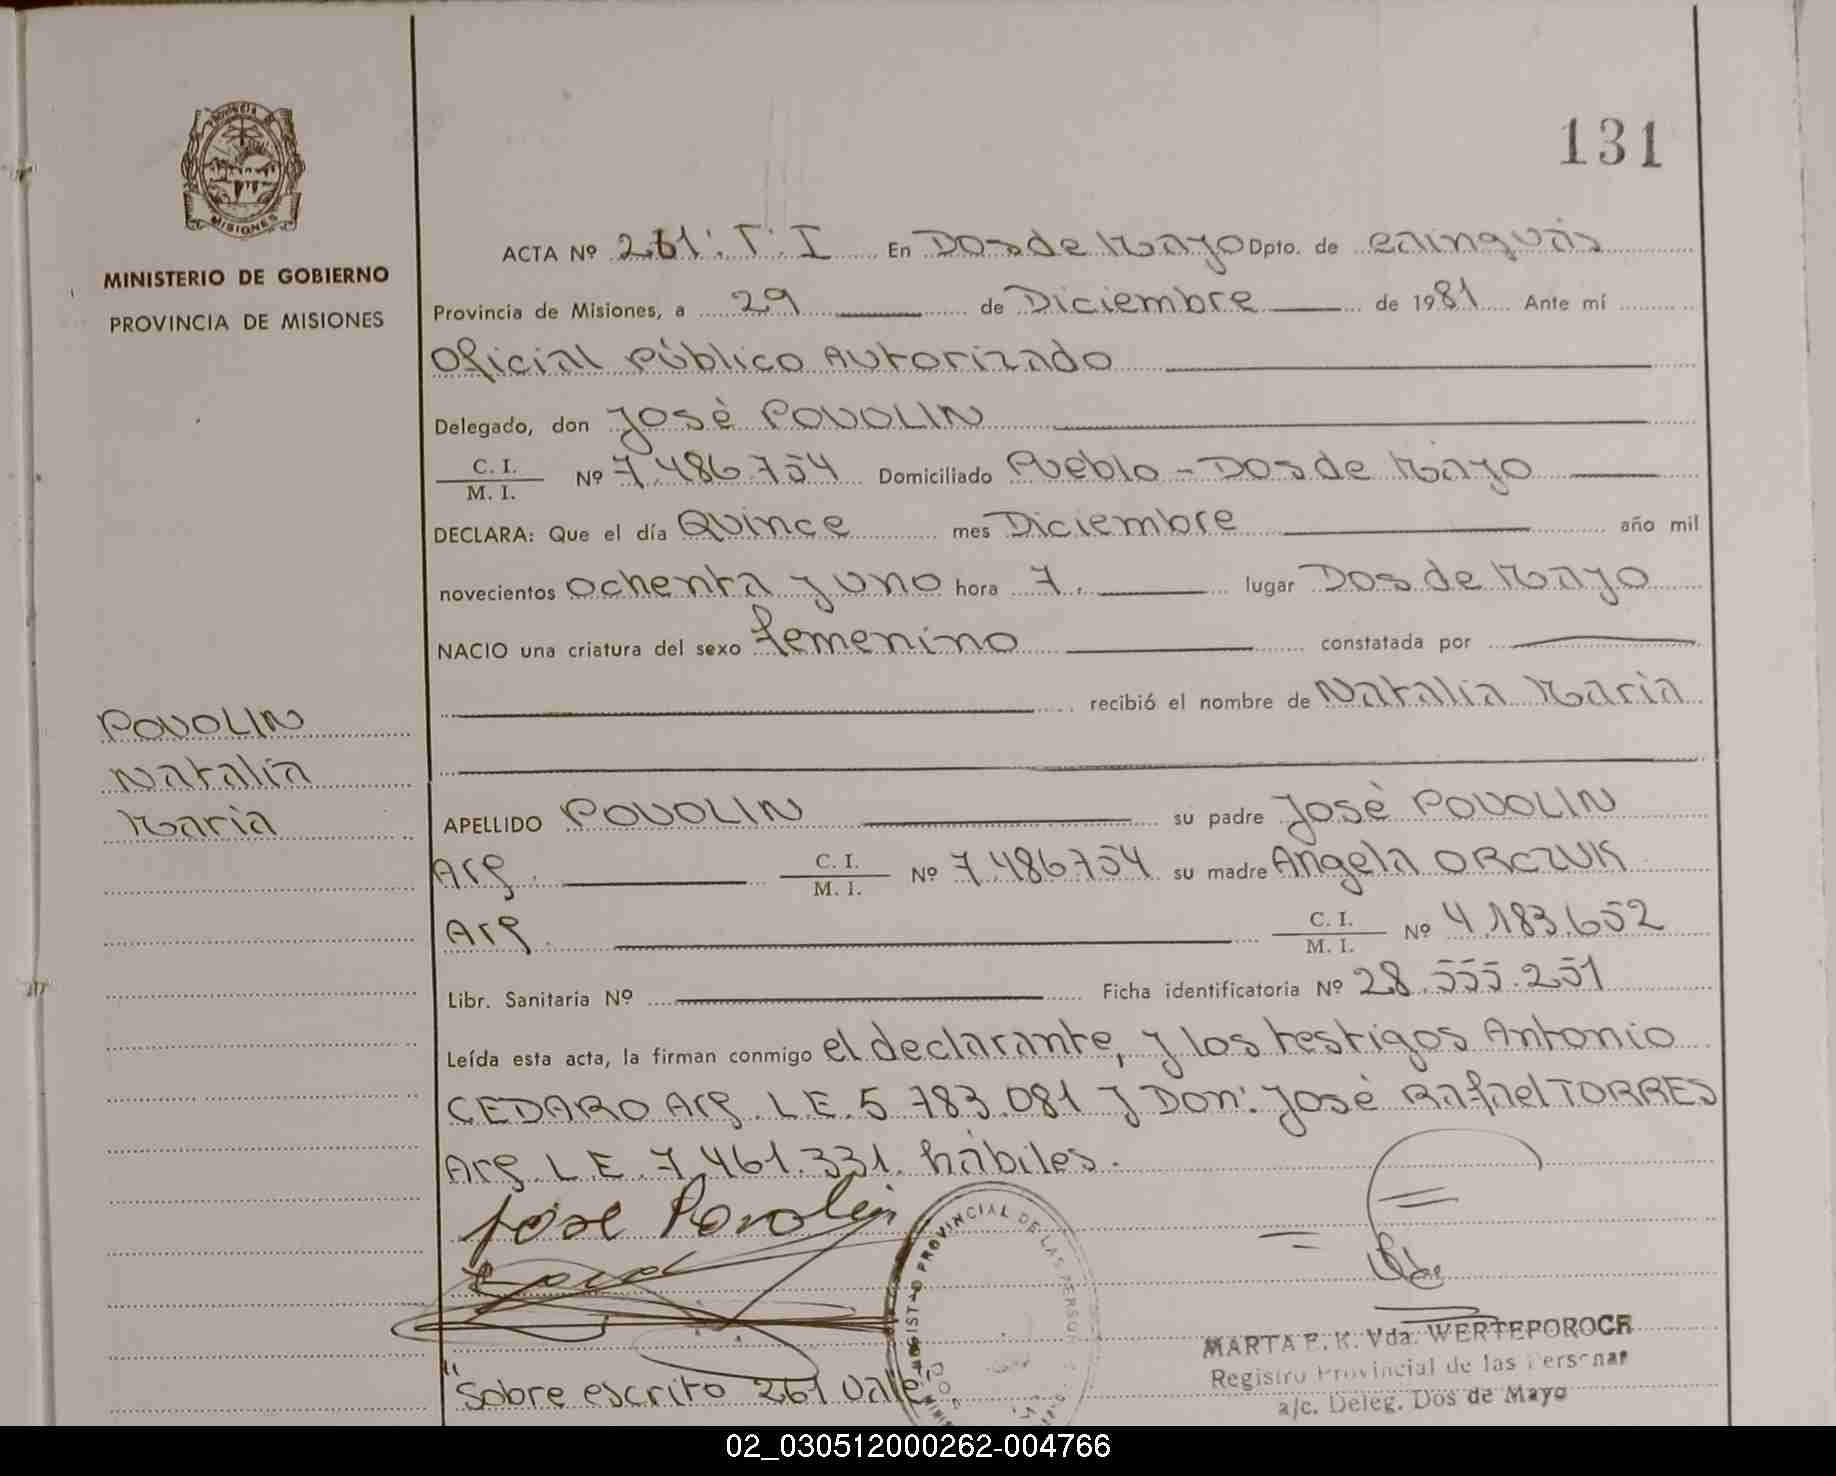 PROVINCIA DE
MISIONES
MINISTERIO DE GOBIERNO
PROVINCIA DE MISIONES
131
ACTA Nº 261: T: I En Dos de Mayo Dpto. de Cainguàs
Provincia de Misiones, a 29 de Diciembre de 1981 Ante mí
Oficial Público Autorizado
Delegado, don José POVOLIN
C. I. / M. I. Nº 7.486.754 Domiciliado Pueblo - Dos de Mayo
DECLARA: Que el día Quince mes Diciembre año mil
novecientos ochenta y uno hora 7. lugar Dos de Mayo
NACIO una criatura del sexo femenino constatada por
recibió el nombre de Natalia Maria
POVOLIN
Natalia
Maria
APELLIDO POVOLIN su padre José POVOLIN
Arg. C. I. / M. I. Nº 7.486.754 su madre Angela ORCZUK
Arg. C. I. / M. I. Nº 4.183.652
Libr. Sanitaria Nº Ficha identificatoria Nº 28.555.251
Leída esta acta, la firman conmigo el declarante, y los testigos Antonio
CEDARO Arg. L.E. 5.783.081 y Don: José Rafael TORRES
Arg. L.E. 7.461.331. hábiles.
José Povolin
REGISTRO PROVINCIAL DE LAS PERSON
MARTA E. K. Vda. WERTEPOROCH
Registro Provincial de las Personas
a/c. Deleg. Dos de Mayo
"Sobre escrito 261 Vale"
02_030512000262-004766